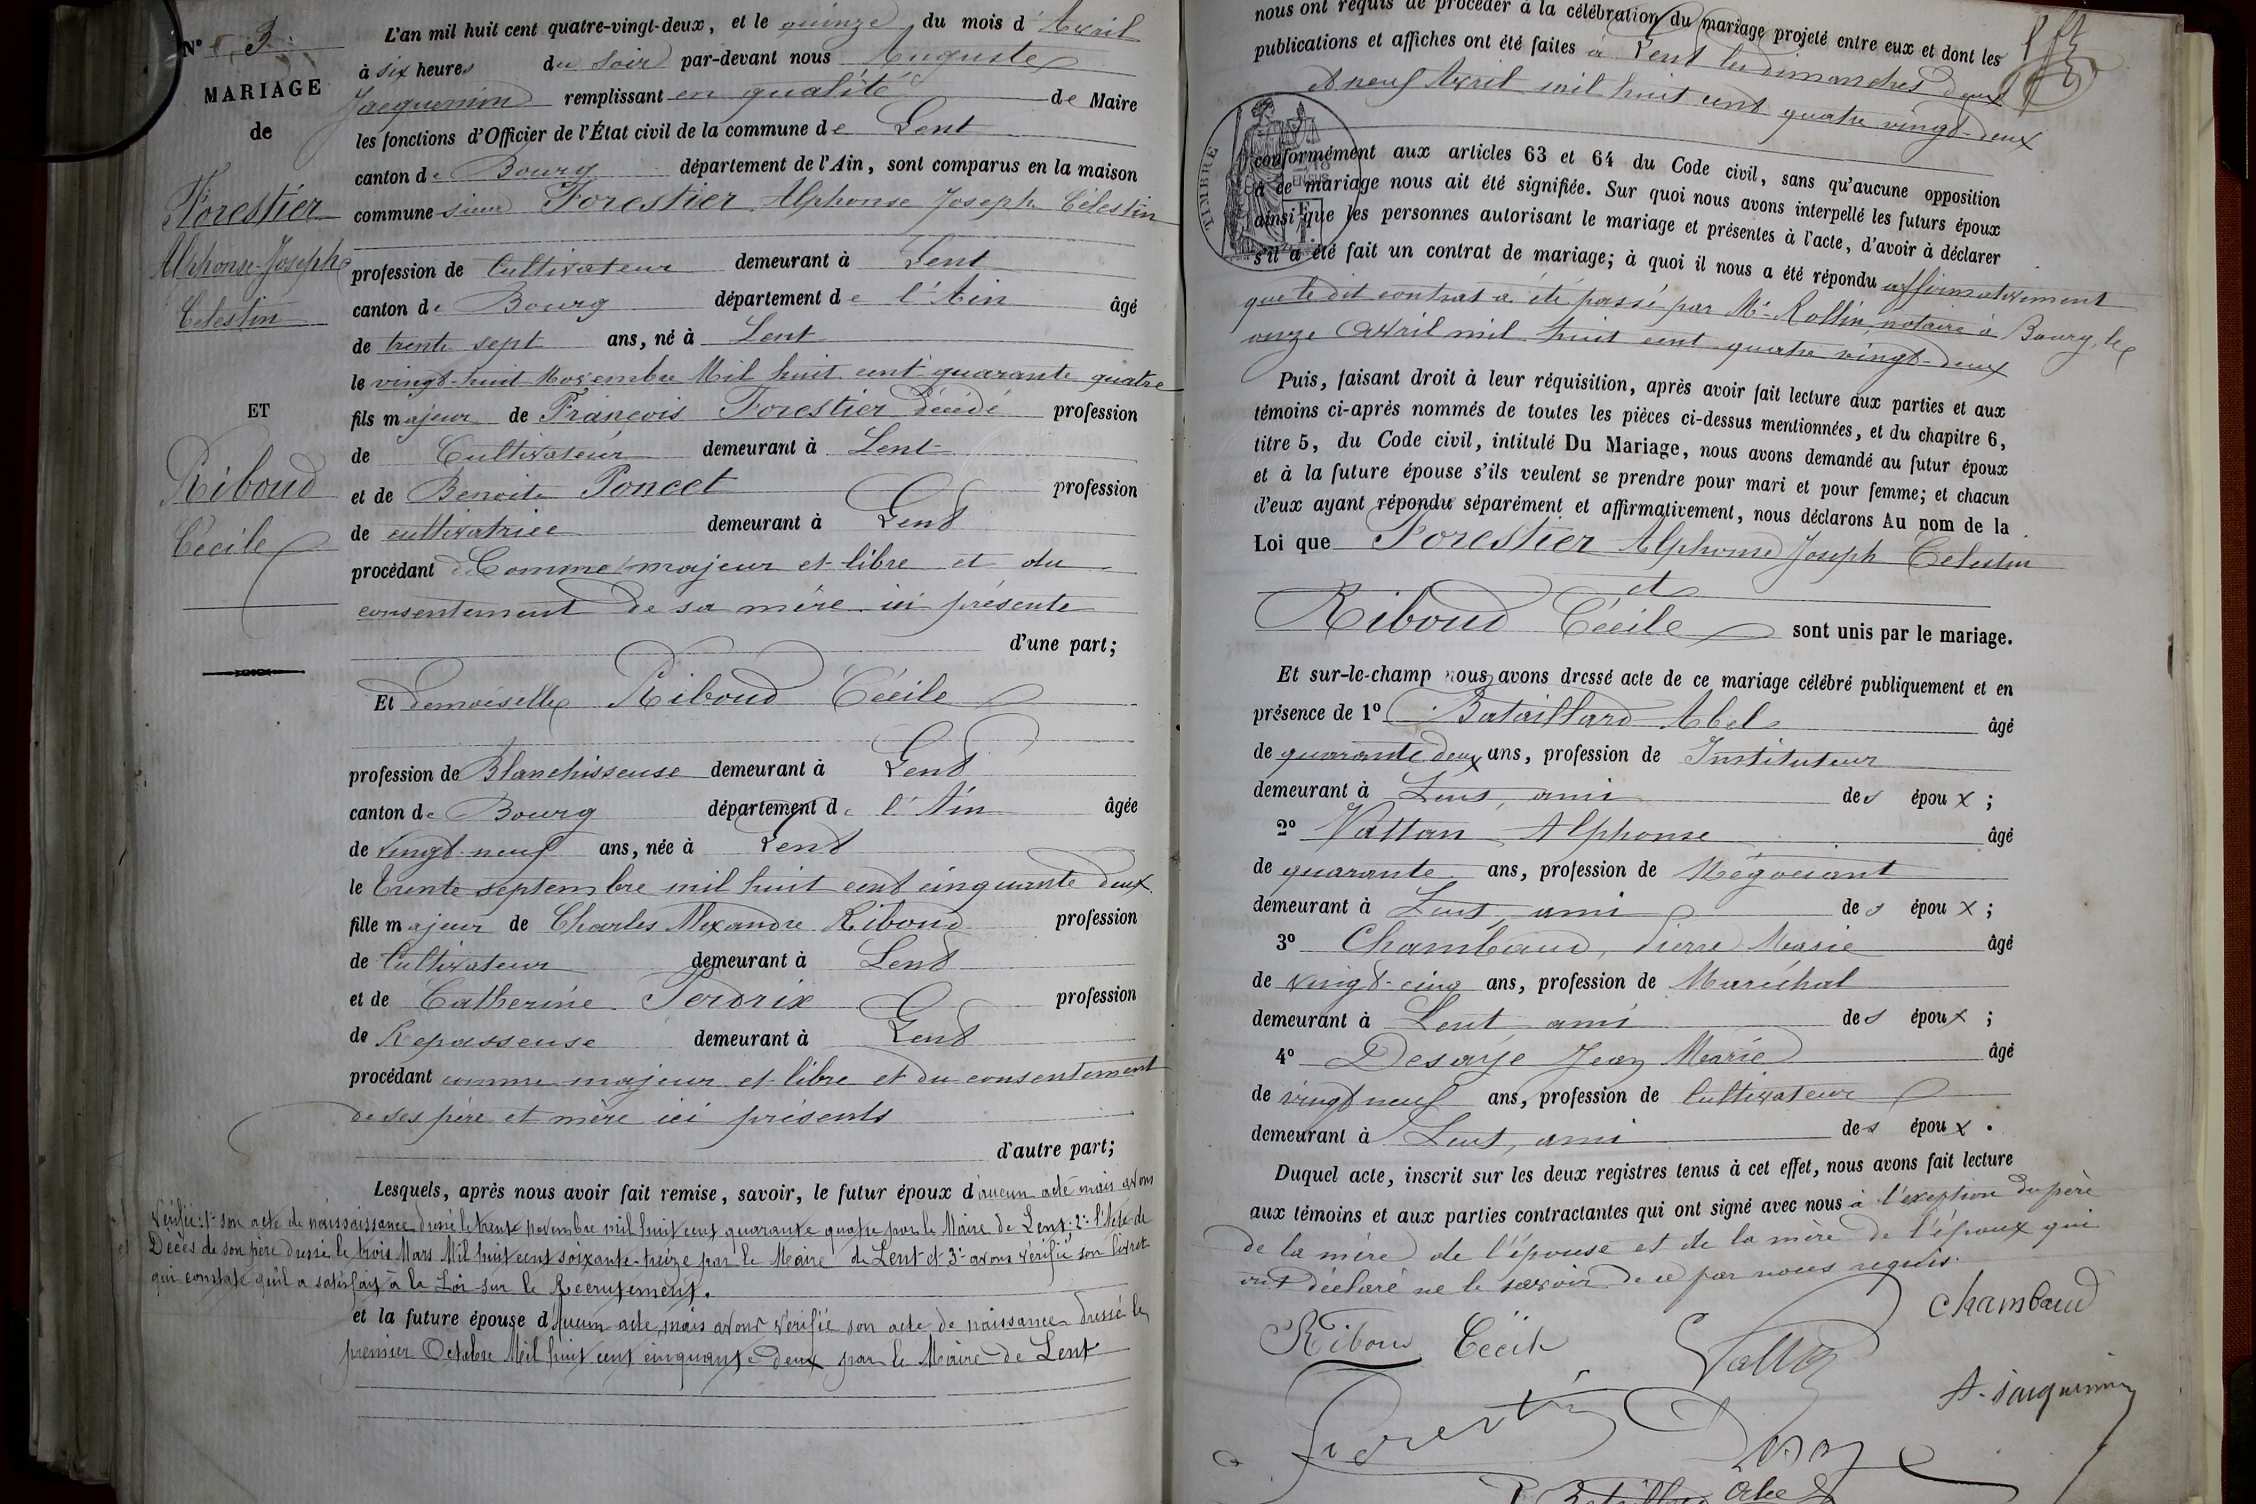 N° 3
MARIAGE
de
Forestier
Alphonse Joseph
Célestin
ET
Riboud
Cécile
L'an mil huit cent quatre-vingt-deux, et le quinze du mois d'Avril
à six heures du soir par-devant nous Auguste
Jacquemin remplissant en qualité de Maire
les fonctions d'Officier de l'État civil de la commune de Lent
canton de Bourg département de l'Ain, sont comparus en la maison
commune sieur Forestier Alphonse Joseph Célestin
profession de Cultivateur demeurant à Lent
canton de Bourg département de l'Ain âgé
de trente sept ans, né à Lent
le vingt-huit Novembre Mil huit cent quarante quatre
fils majeur de François Forestier décédé profession
de Cultivateur demeurant à Lent
et de Benoite Poncet profession
de cultivatrice demeurant à Lent
procédant Comme majeur et libre et du
consentement de sa mère ici présente
d'une part;
Et demoiselle Riboud Cécile
profession de Blanchisseuse demeurant à Lent
canton de Bourg département de l'Ain âgée
de vingt-neuf ans, née à Lent
le trente septembre mil huit cent cinquante deux
fille majeur de Charles Alexandre Riboud profession
de Cultivateur demeurant à Lent
et de Catherine Perdrix profession
de Repasseuse demeurant à Lent
procédant comme majeur et libre et du consentement
de ses père et mère ici présents
d'autre part;
Lesquels, après nous avoir fait remise, savoir, le futur époux d'aucun acte mais avons
vérifié: 1° son acte de naissance dressé le trente novembre mil huit cent quarante quatre par le Maire de Lent; 2° l'Acte de
Décès de son père dressé le trois Mars Mil huit cent soixante-treize par le Maire de Lent et 3° avons vérifié son livret
qui constate qu'il a satisfait à la Loi sur le Recrutement.
et la future épouse d'Aucun acte, mais avons vérifié son acte de naissance dressé le
premier Octobre Mil huit cent cinquante deux par le Maire de Lent
nous ont requis de procéder à la célébration du mariage projeté entre eux et dont les
publications et affiches ont été faites à Lent les dimanches deux
et neuf Avril mil huit cent quatre vingt-deux
TIMBRE
conformément aux articles 63 et 64 du Code civil, sans qu'aucune opposition
à ce mariage nous ait été signifiée. Sur quoi nous avons interpellé les futurs époux
ainsi que les personnes autorisant le mariage et présentes à l'acte, d'avoir à déclarer
s'il a été fait un contrat de mariage; à quoi il nous a été répondu affirmativement
que le dit contrat a été passé par Me Rollin, notaire à Bourg, le
onze Avril mil huit cent quatre vingt-deux
Puis, faisant droit à leur réquisition, après avoir fait lecture aux parties et aux
témoins ci-après nommés de toutes les pièces ci-dessus mentionnées, et du chapitre 6,
titre 5, du Code civil, intitulé Du Mariage, nous avons demandé au futur époux
et à la future épouse s'ils veulent se prendre pour mari et pour femme; et chacun
d'eux ayant répondu séparément et affirmativement, nous déclarons Au nom de la
Loi que Forestier Alphonse Joseph Célestin
et
Riboud Cécile sont unis par le mariage.
Et sur-le-champ nous avons dressé acte de ce mariage célébré publiquement et en
présence de 1° Bataillard Abel âgé
de quarante deux ans, profession de Instituteur
demeurant à Lent, ami des époux;
2° Vattan Alphonse âgé
de quarante ans, profession de Négociant
demeurant à Lent, ami des époux;
3° Chambaud, Pierre Marie âgé
de vingt-cinq ans, profession de Maréchal
demeurant à Lent ami des époux;
4° Desaye Jean Marie âgé
de vingt neuf ans, profession de Cultivateur
demeurant à Lent, ami des époux.
Duquel acte, inscrit sur les deux registres tenus à cet effet, nous avons fait lecture
aux témoins et aux parties contractantes qui ont signé avec nous à l'exception du père
de la mère de l'épouse et de la mère de l'époux qui
ont déclaré ne le savoir de ce par nous requis.
Chambaud
Riboud Cécile
A. Jacquemin
Forestier